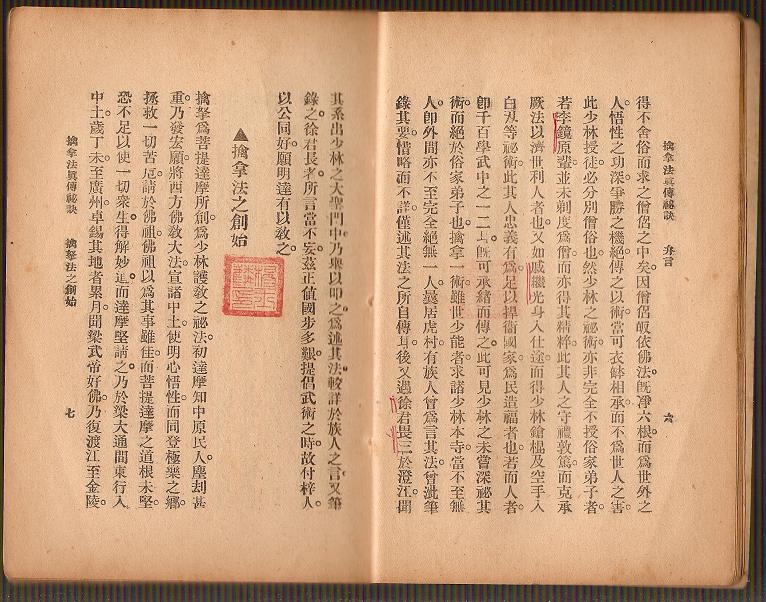 擒拿法眞傳祕訣　弁言
六
得不舍俗而求之僧侶之中矣。因僧侶皈依佛法。旣淨六根。而爲世外之
人。悟性之功深。爭勝之機絕。傳之以術。當可衣缽相承。而不爲世人之害。
此少林授徒。必分別僧俗也。然少林之祕術。亦非完全不授俗家弟子者。
若李鏡原輩。並未剃度爲僧。而亦得其精粹。此其人之守禮敦篤。而克承
厥法以濟世利人者也。又如戚繼光身入仕途。而得少林鎗棍及空手入
白刄等祕術。此其人忠義有爲。足以捍衞國家。爲民造福者也。若而人者。
卽千百學武中之一二。旣可承緒而傳之。此可見少林之未嘗深祕其
術。而絕於俗家弟子也。擒拿一術。雖世少能者。求諸少林本寺。當不至無
人。卽外間亦不至完全絕無一人。曩居虎村。有族人曾爲言其法。曾泚筆
錄其要。惜略而不詳。僅述其法之所自傳耳。後又遇徐君畏三於澄江。聞
其系出少林之大聖門中。乃舉以叩之。爲述其法。較詳於族人之言。又筆
錄之。徐君長者。所言當不妄。茲正値國步多艱。提倡武術之時。故付梓人。
以公同好。願明達有以敎之。
▲擒拿法之創始
擒拏爲菩提達摩所創。爲少林護敎之祕法。初達摩知中原民人。塵刼甚
重。乃發宏願。將西方佛敎大法。宣諸中土。使明心悟性。而同登極樂之鄉。
拯救一切苦厄。請於佛祖。佛祖以爲其事雖佳。而菩提達摩之道根未堅。
恐不足以使一切衆生。得解妙道。而達摩堅請之。乃於梁大通間東行入
中土。歲丁未。至廣州。卓錫其地者累月。聞梁武帝好佛。乃復渡江至金陵。
擒拿法眞傳祕訣　擒拿法之創始
七